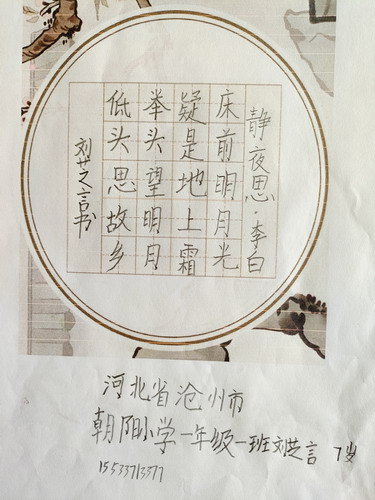 静夜思·李白
床前明月光
疑是地上霜
举头望明月
低头思故乡
刘芝言书
河北省沧州市
朝阳小学一年级一班刘芝言 7岁
15533713377